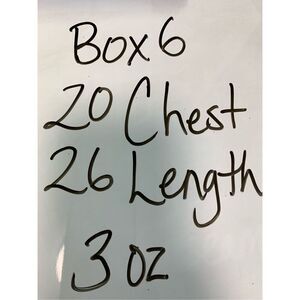 Box 6
20 Chest
26 Length
3 oz